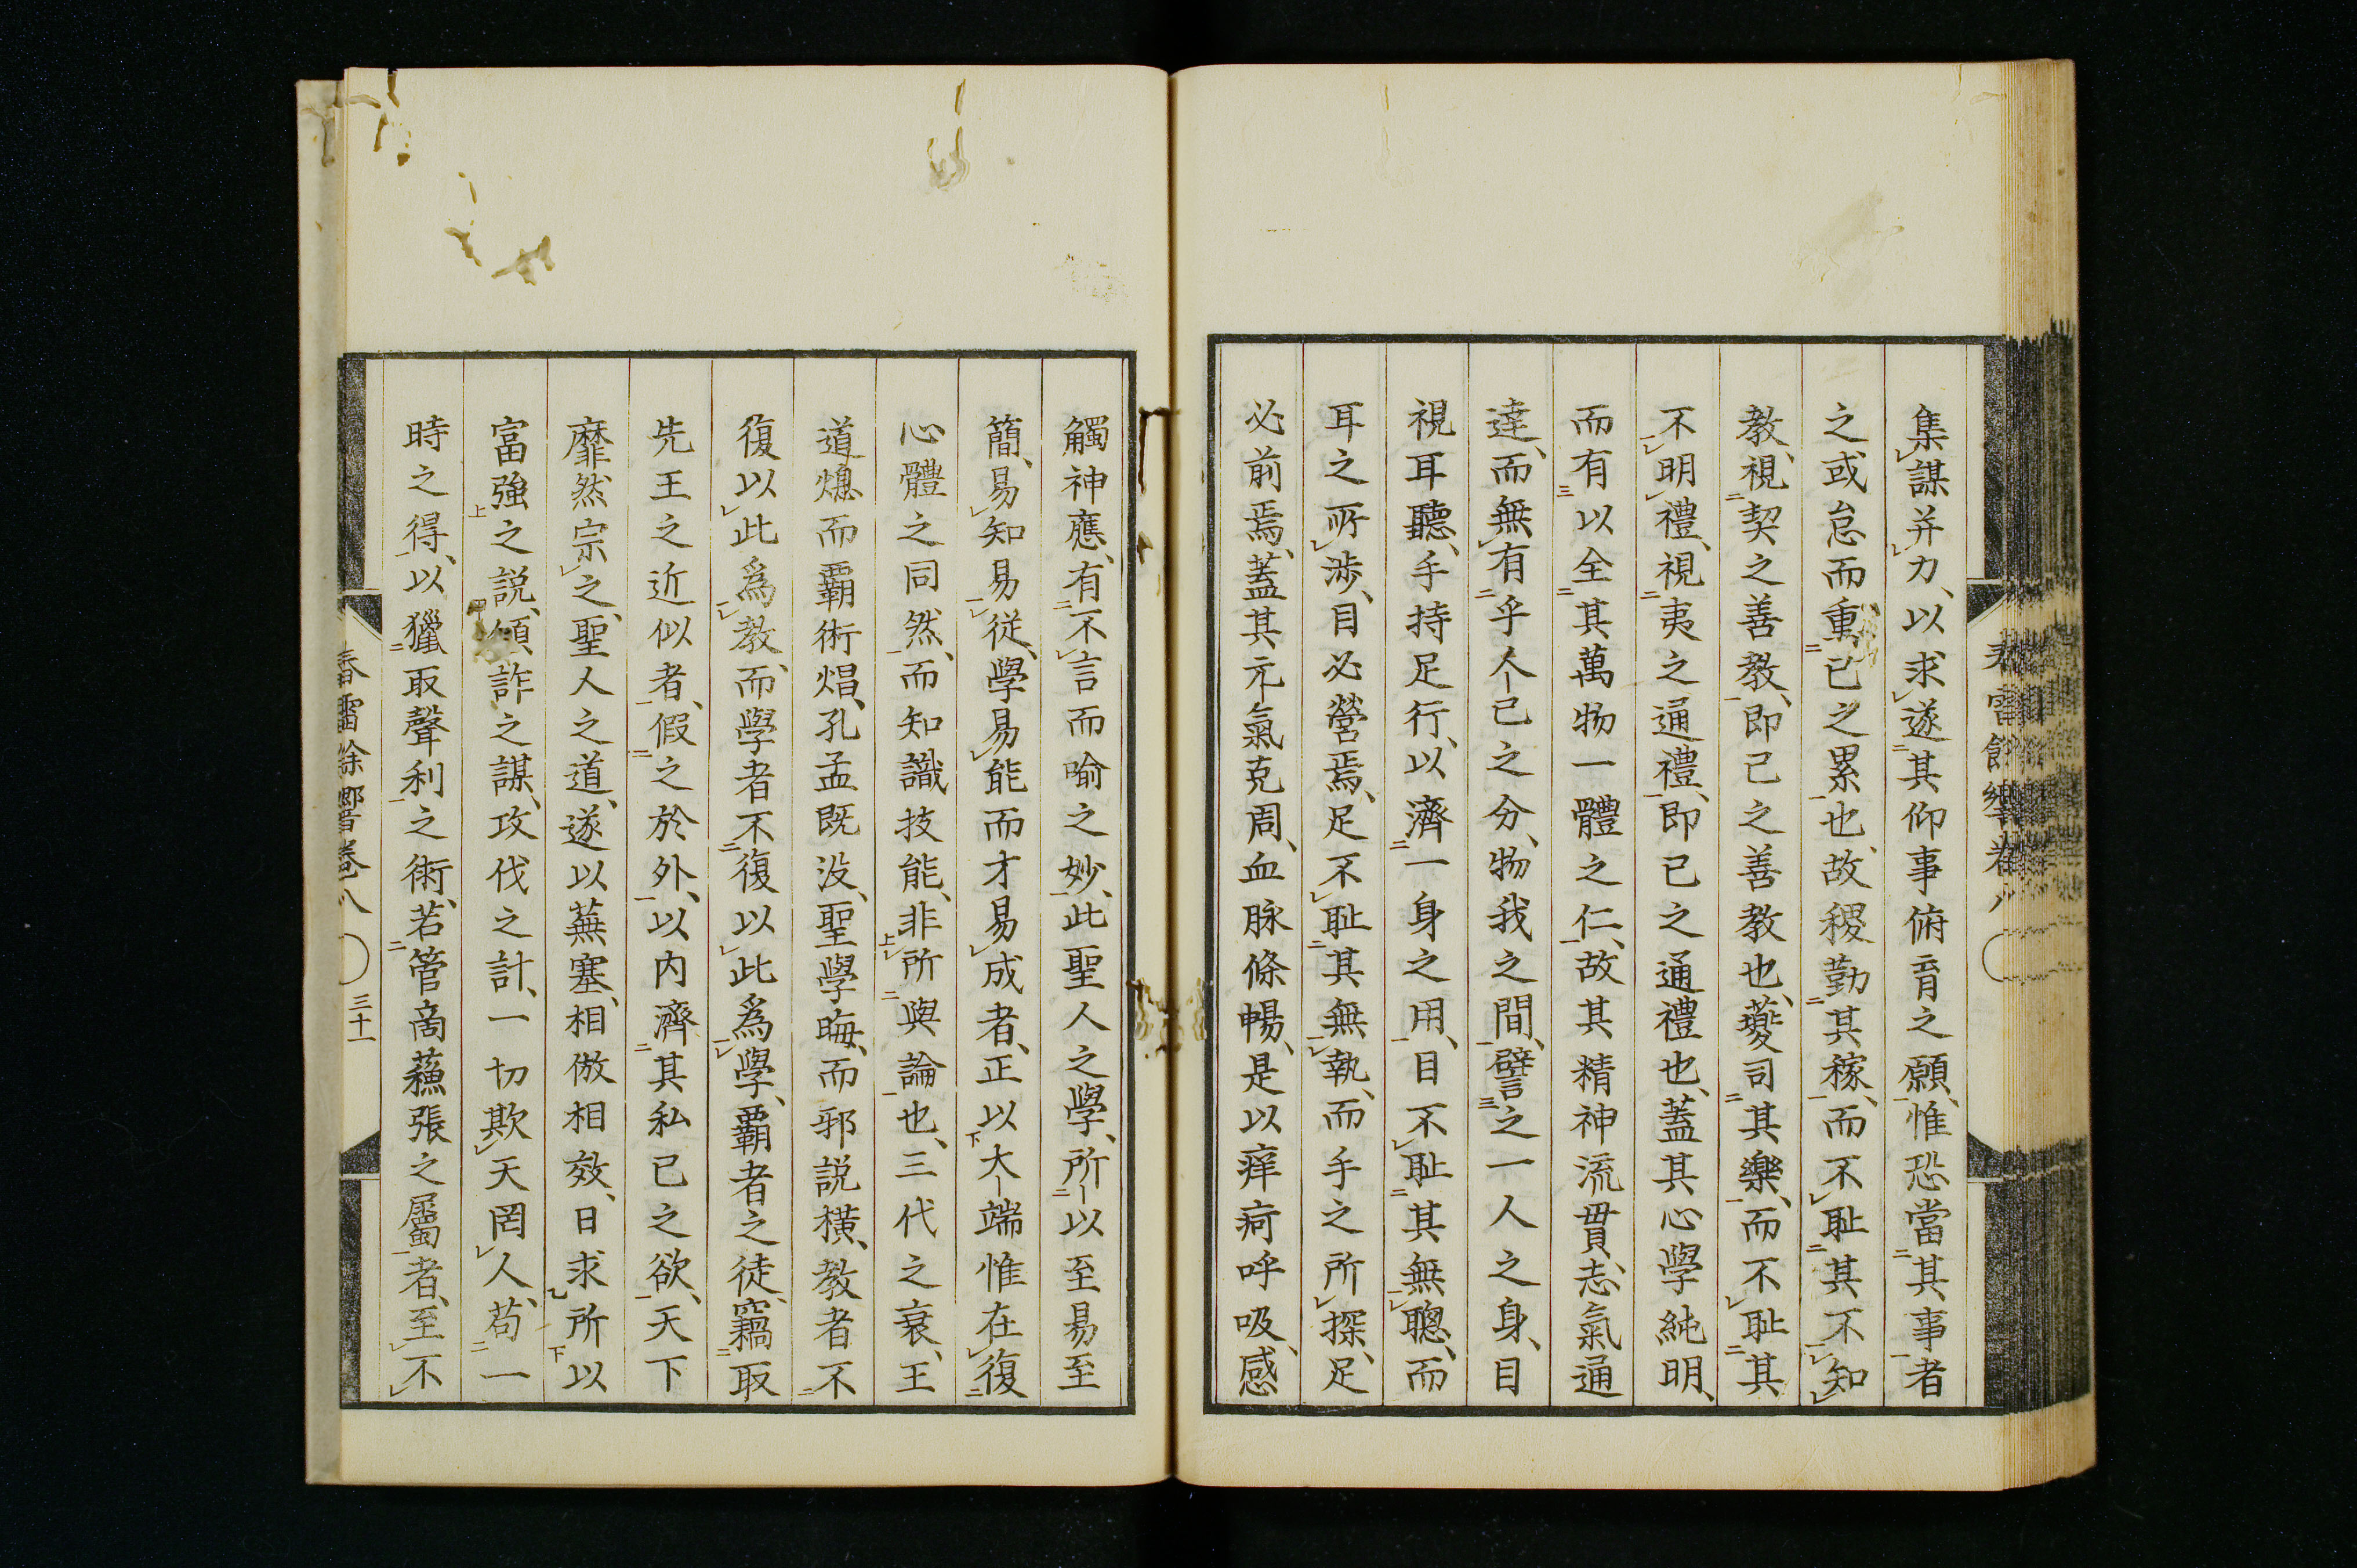 集謀并力、以求遂其仰事俯育之願、惟恐當其事者
之或怠而重已之累也、故稷勤其稼、而不耻其不知
教、視契之善教、即己之善教也、夔司其樂、而不耻其
不明禮、視夷之通禮、即已之通禮也、蓋其心學純明、
而有以全其萬物一體之仁、故其精神流貫、志氣通
達、而無有乎人己之分、物我之間、譬之一人之身、目
視耳聽、手持足行、以濟一身之用、目不耻其無聰、而
耳之所涉、目必營焉、足不耻其無執、而手之所探、足
必前焉、蓋其元氣克周、血脉條暢、是以痒疴呼吸、感
觸神應、有不言而喻之妙、此聖人之學、所以至易至
簡、易知易從、學易能而才易成者、正以大端惟在復
心體之同然、而知識技能、非所與論也、三代之衰、王
道熄而覇術焻、孔孟既没、聖學晦、而邪説横、教者不
復以此爲教、而學者不復以此爲學、覇者之徒、竊取
先王之近似者、假之於外、以内濟其私已之欲、天下
靡然宗之、聖人之道、遂以蕪塞、相倣相效、日求所以
富強之説、傾詐之謀、攻伐之計、一切欺天罔人、苟一
時之得、以獵取聲利之術、若管商蘓張之屬者、至不
春雷餘響卷八 三十一